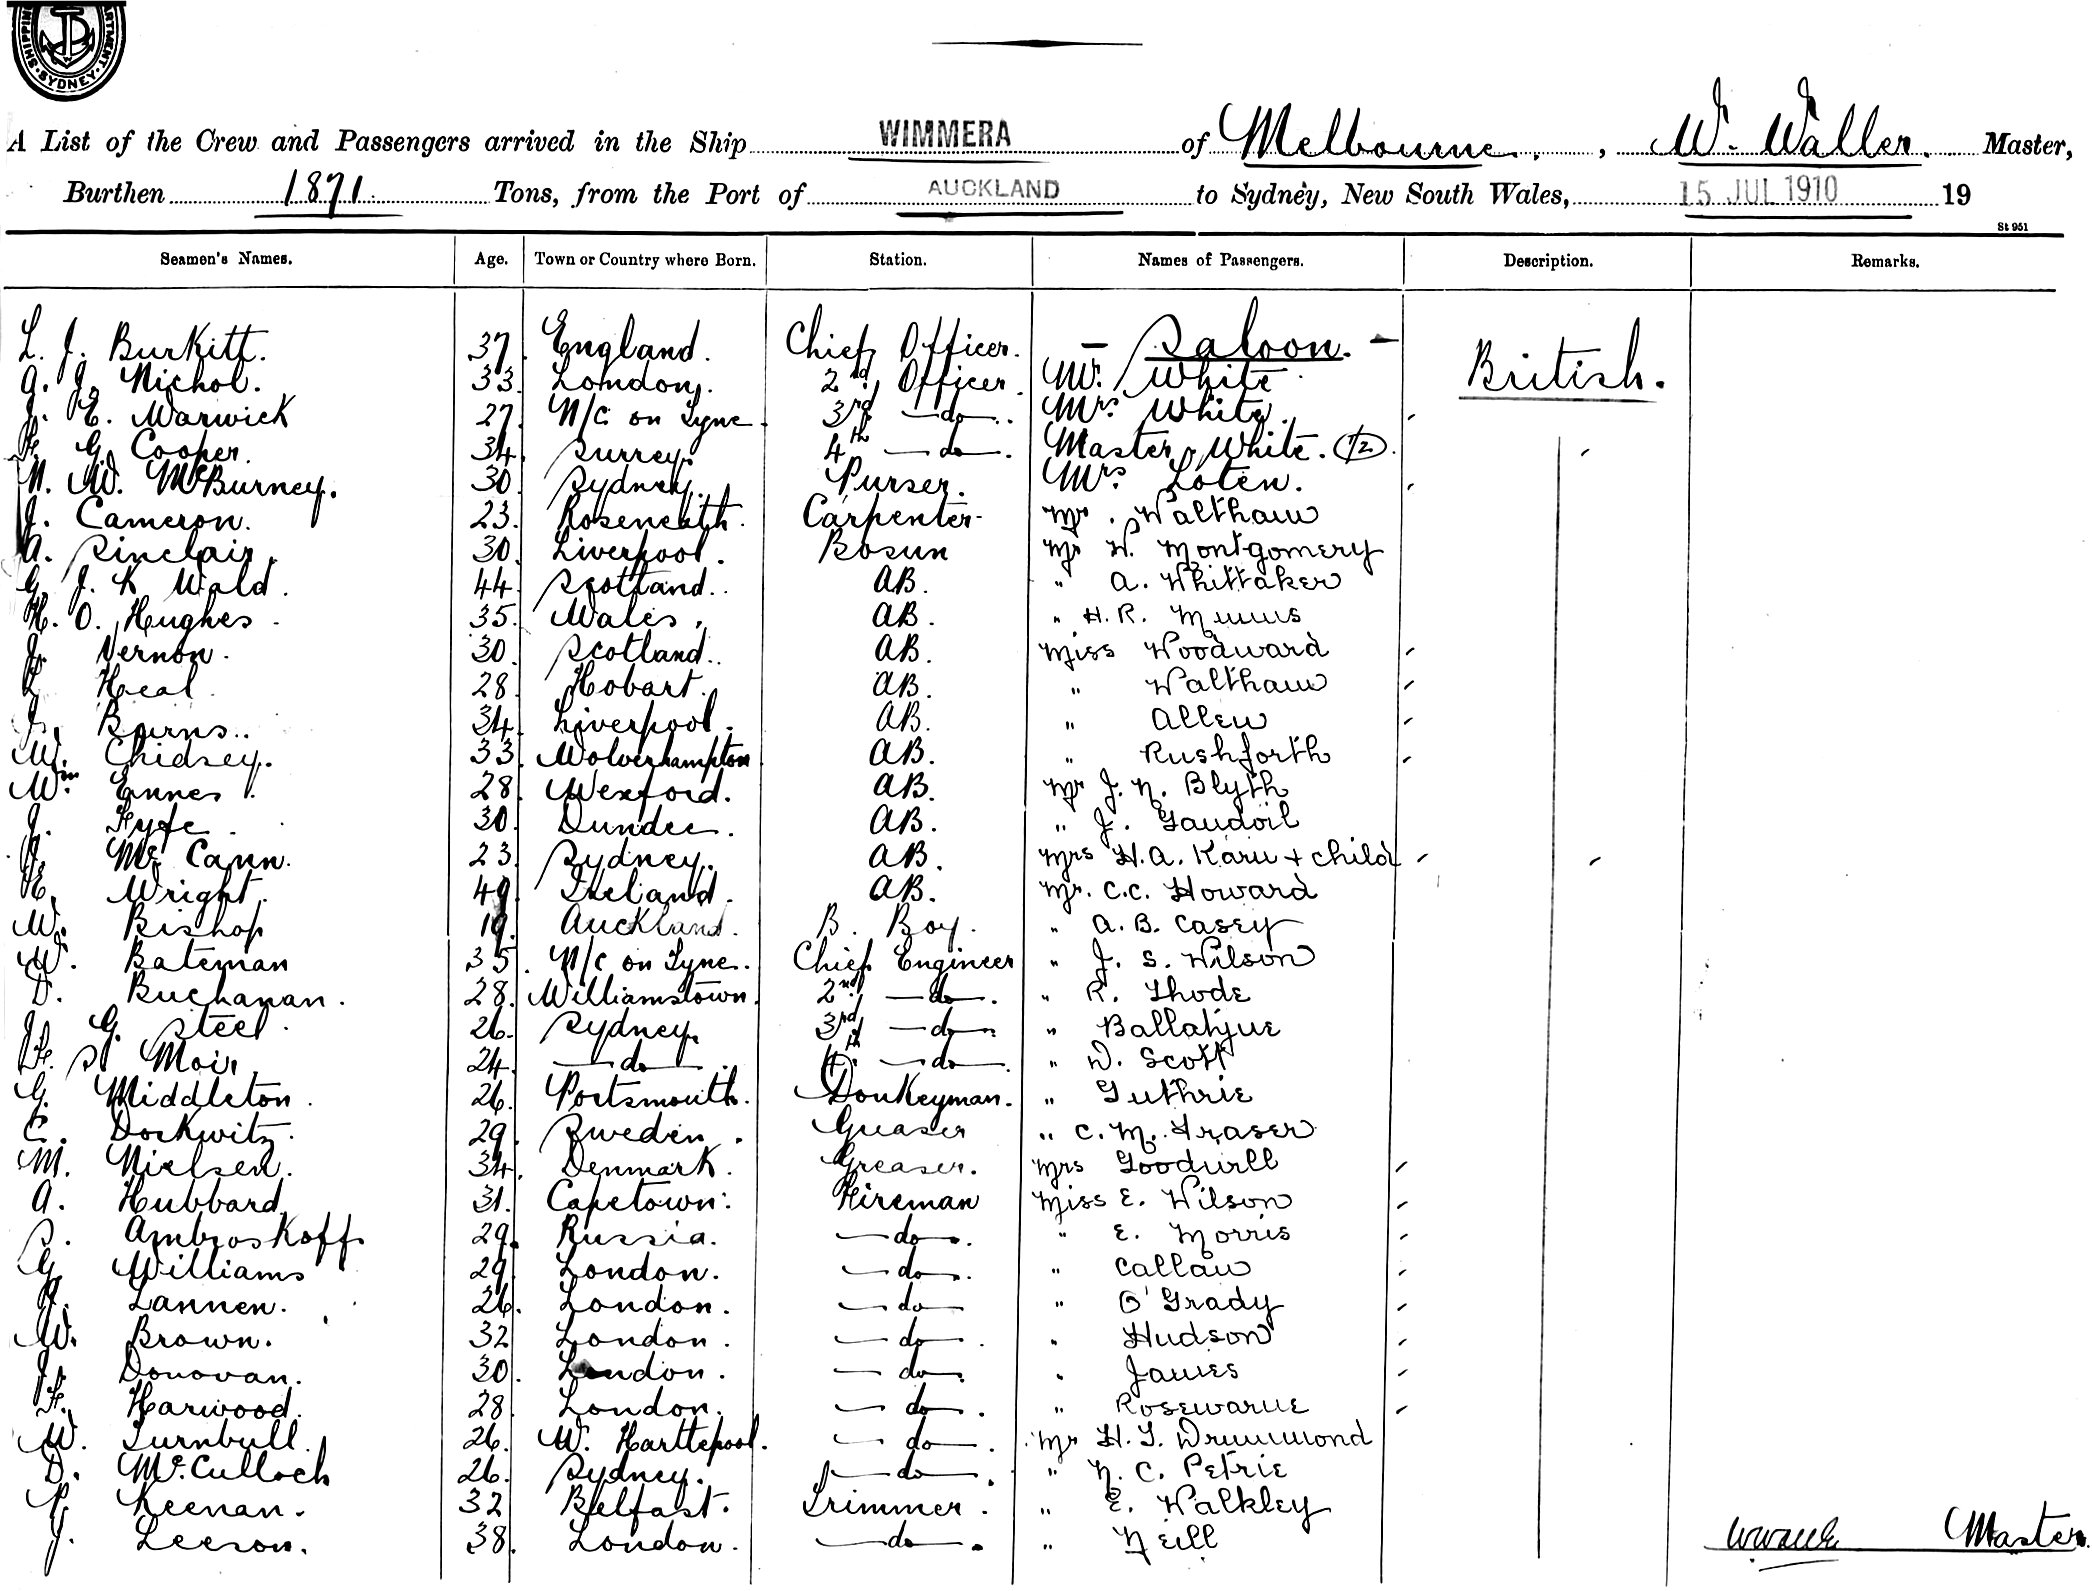 SHIPPING DEPARTMENT SYDNEY
A List of the Crew and Passengers arrived in the Ship WIMMERA of Melbourne, W. Waller. Master,
Burthen 1871. Tons, from the Port of AUCKLAND to Sydney, New South Wales, 15 JUL 1910 19
St 951
Seamen's Names. Age. Town or Country where Born. Station. Names of Passengers. Description. Remarks.
L. J. Burkitt. 37 England. Chief Officer. — Saloon. — British.
A. J. Nichol. 33. London. 2nd Officer. Mr. White
J. E. Warwick 27. N/C on Tyne. 3rd —do—. Mrs White.
F. G. Cooper. 34. Surrey. 4th —do—. Master White. (1/2).
N. W. McBurney. 30 Sydney. Purser. Mrs Loten.
J. Cameron. 23. Roseneath. Carpenter. Mr. Waltham
A. Sinclair. 30. Liverpool. Bosun Mr W. Montgomery
G. J. K Wald. 44. Scotland. AB. " A. Whittaker
H. O. Hughes. 35. Wales. AB. " H. R.
J. Vernon. 30. Scotland. AB. Miss Woodward
Heal. 28. Hobart. AB. " Waltham
J. Burns. 34. Liverpool. AB. " Allen
W. Chidsey. 33. Wolverhampton AB. " Rushforth
Wm Ennes. 28. Wexford. AB. Mr J. N. Blyth
J. Fyfe. 30. Dundee. AB. " J. Gaudoil
J. McCann. 23. Sydney. AB. Mrs H. A. Karu + child
E. Wright. 49. Ireland. AB. Mr. C. C. Howard
W. Bishop 19. Auckland. B. Boy. " A. B. Casey
W. Bateman 35. N/C on Tyne. Chief Engineer " J. S. Wilson
D. Buchanan. 28. Williamstown. 2nd —do—. " R. Thode
J. G. Steel. 26. Sydney. 3rd —do—. "
F. S. Moir. 24. —do—. 4th —do—. " D. Scott
G. Middleton. 26. Portsmouth. Donkeyman. " Guthrie
C. Doskwitz. 29. Sweden. Greaser " C. M. Fraser
M. Nielsen. 34. Denmark. Greaser. Mrs Goodwill
A. Hubbard 31. Capetown. Fireman Miss E. Wilson
S. Ambroskoff 29. Russia. —do—. " E. Morris
G. Williams 29. London. —do—. " Callaw
Lannen. 26. London. —do— " O'Grady
W. Brown. 32 London. —do—. " Hudson
J. Donovan. 30. London. —do—. " James
F. Harwood. 28. London. —do—. " Rosewarne
W. Turnbull. 26. W. Hartlepool. —do—. Mr H. T. Drummond
D. McCulloch 26. Sydney. —do—. " N. C. Petrie
P. Keenan. 32 Belfast. Trimmer. " E. Walkley
J. Leeson. 38. London. —do—. " Neill
Master.